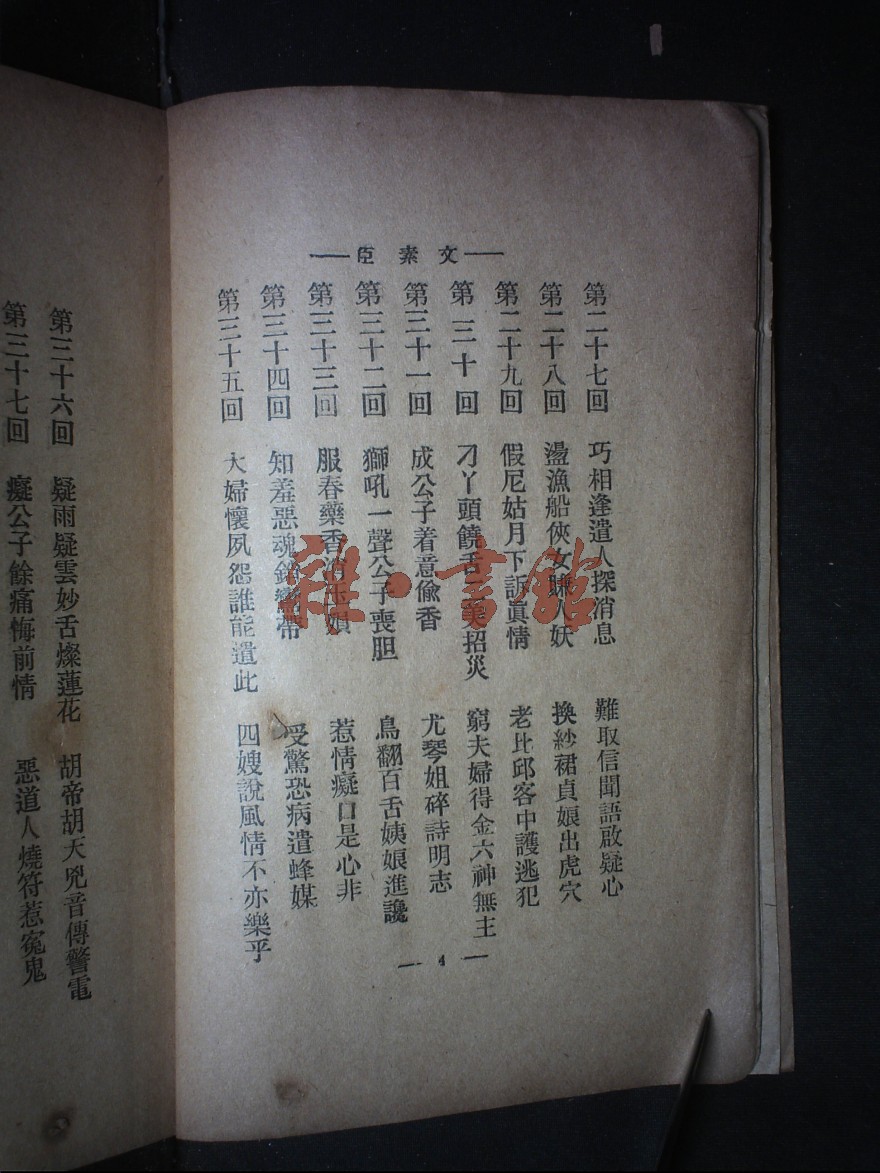 —文素臣—
第二十七回 巧相逢遣人探消息 難取信聞語啟疑心
第二十八回 盪漁船俠女賺人妖 換紗裙貞娘出虎穴
第二十九回 假尼姑月下訴眞情 老比邱客中護逃犯
第三十回 刁丫頭饒舌三美招災 窮夫婦得金六神無主
第三十一回 成公子着意偷香 尤琴姐碎詩明志
第三十二回 獅吼一聲公子喪胆 鳥翻百舌姨娘進讒
第三十三回 服春藥香消玉殞 惹情癡口是心非
第三十四回 知羞惡魂銷 帶 受驚恐病遣蜂媒
第三十五回 大婦懷夙怨誰能遣此 四嫂說風情不亦樂乎
—4—
第三十六回 疑雨疑雲妙舌燦蓮花 胡帝胡天兇音傳警電
第三十七回 癡公子餘痛悔前情 惡道人燒符惹寃鬼
雜·書館